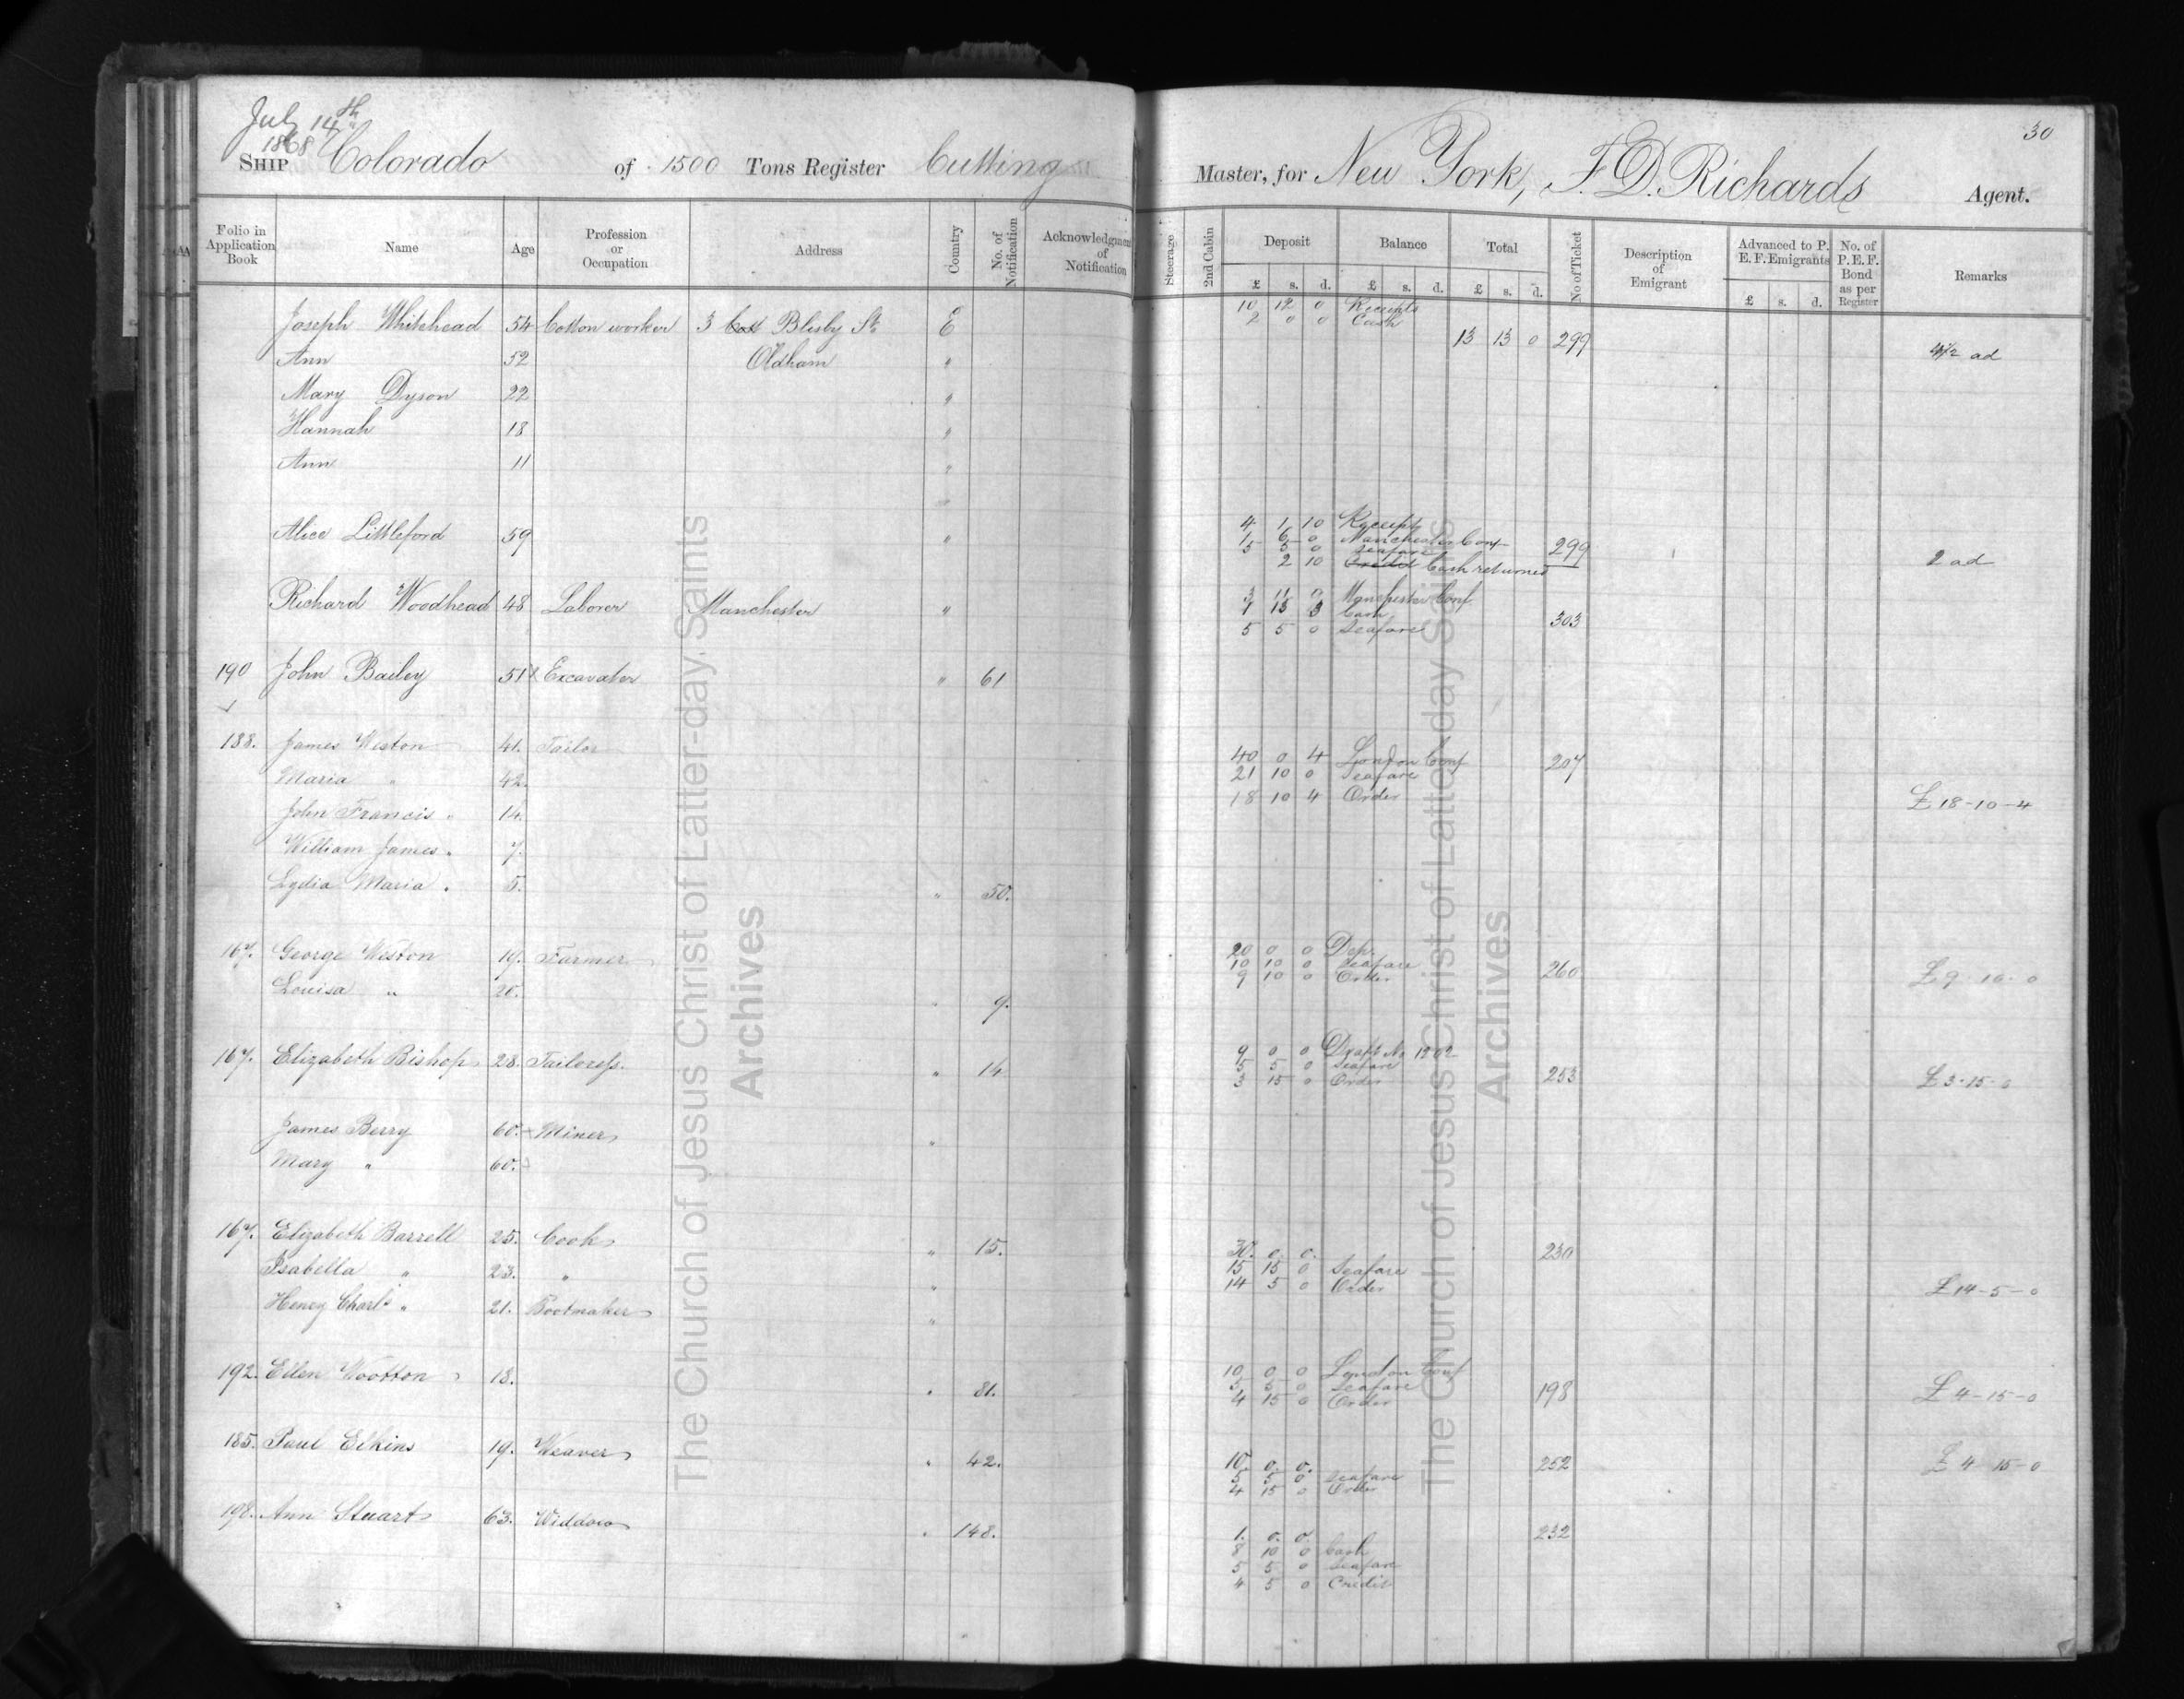 July 14th
1868
SHIP Colorado of 1500 Tons Register Cutting Master, for New York, F. D. Richards Agent.
30
Folio in Application Book | Name | Age | Profession or Occupation | Address | Country | No. of Notification | Acknowledgment of Notification | Steerage | 2nd Cabin | Deposit £ s. d. | Balance £ s. d. | Total £ s. d. | No of Ticket | Description of Emigrant | Advanced to P. E. F. Emigrants £ s. d. | No. of P. E. F. Bond as per Register | Remarks
Joseph Whitehead 54 Cotton worker 3 Blisby St. E 10 12 0 Receipts
2 0 0 Cash
13 13 0 299
Ann 52 Oldham " 4½ ad
Mary Dyson 22 "
Hannah 18 "
Ann 11 "
Alice Littleford 59 " 4 1 10 Receipts
1 6 0 Manchester Conf 299
5 5 0 Seafare
2 10 Credit Cash returned 2 ad
Richard Woodhead 48 Laborer Manchester " 3 11 0 Manchester Conf
1 13 3 Cash 303
5 5 0 Seafare
190 John Bailey 51 Excavator " 61
188. James Weston 41. Tailor 40 0 4 London Conf 207
Maria " 42. 21 10 0 Seafare
18 10 4 Order £18-10-4
John Francis " 14.
William James " 7.
Lydia Maria " 5. " 50.
167. George Weston 19. Farmer 20 0 0 Dep.
10 10 0 Seafare 260
9 10 0 Order £9-10-0
Louisa " 20. " 9.
167. Elizabeth Bishop 28. Tailoress. " 14 9 0 0 Draft No 1202
5 5 0 Seafare 253
3 15 0 Order £3-15-0
James Berry 60. Miner "
Mary " 60.
167. Elizabeth Barrell 25. Cook " 15. 30. 0. 0. 230
Isabella " 23. " " 15 15 0 Seafare
14 5 0 Order £14-5-0
Henry Charls " 21. Bootmaker "
192. Ellen Wootton 18. " 81. 10 0 0 London Conf
5 5 0 Seafare 198
4 15 0 Order £4-15-0
185. Paul Elkins 19. Weaver " 42. 10. 0. 0. 252
5 5 0 Seafare
4 15 0 Order £4 15-0
198. Ann Stuart 63. Widdow " 148. 1. 0. 0. 232
8 10 0 Cash
5 5 0 Seafare
4 5 0 Credit
The Church of Jesus Christ of Latter-day Saints
Archives
The Church of Jesus Christ of Latter-day Saints
Archives